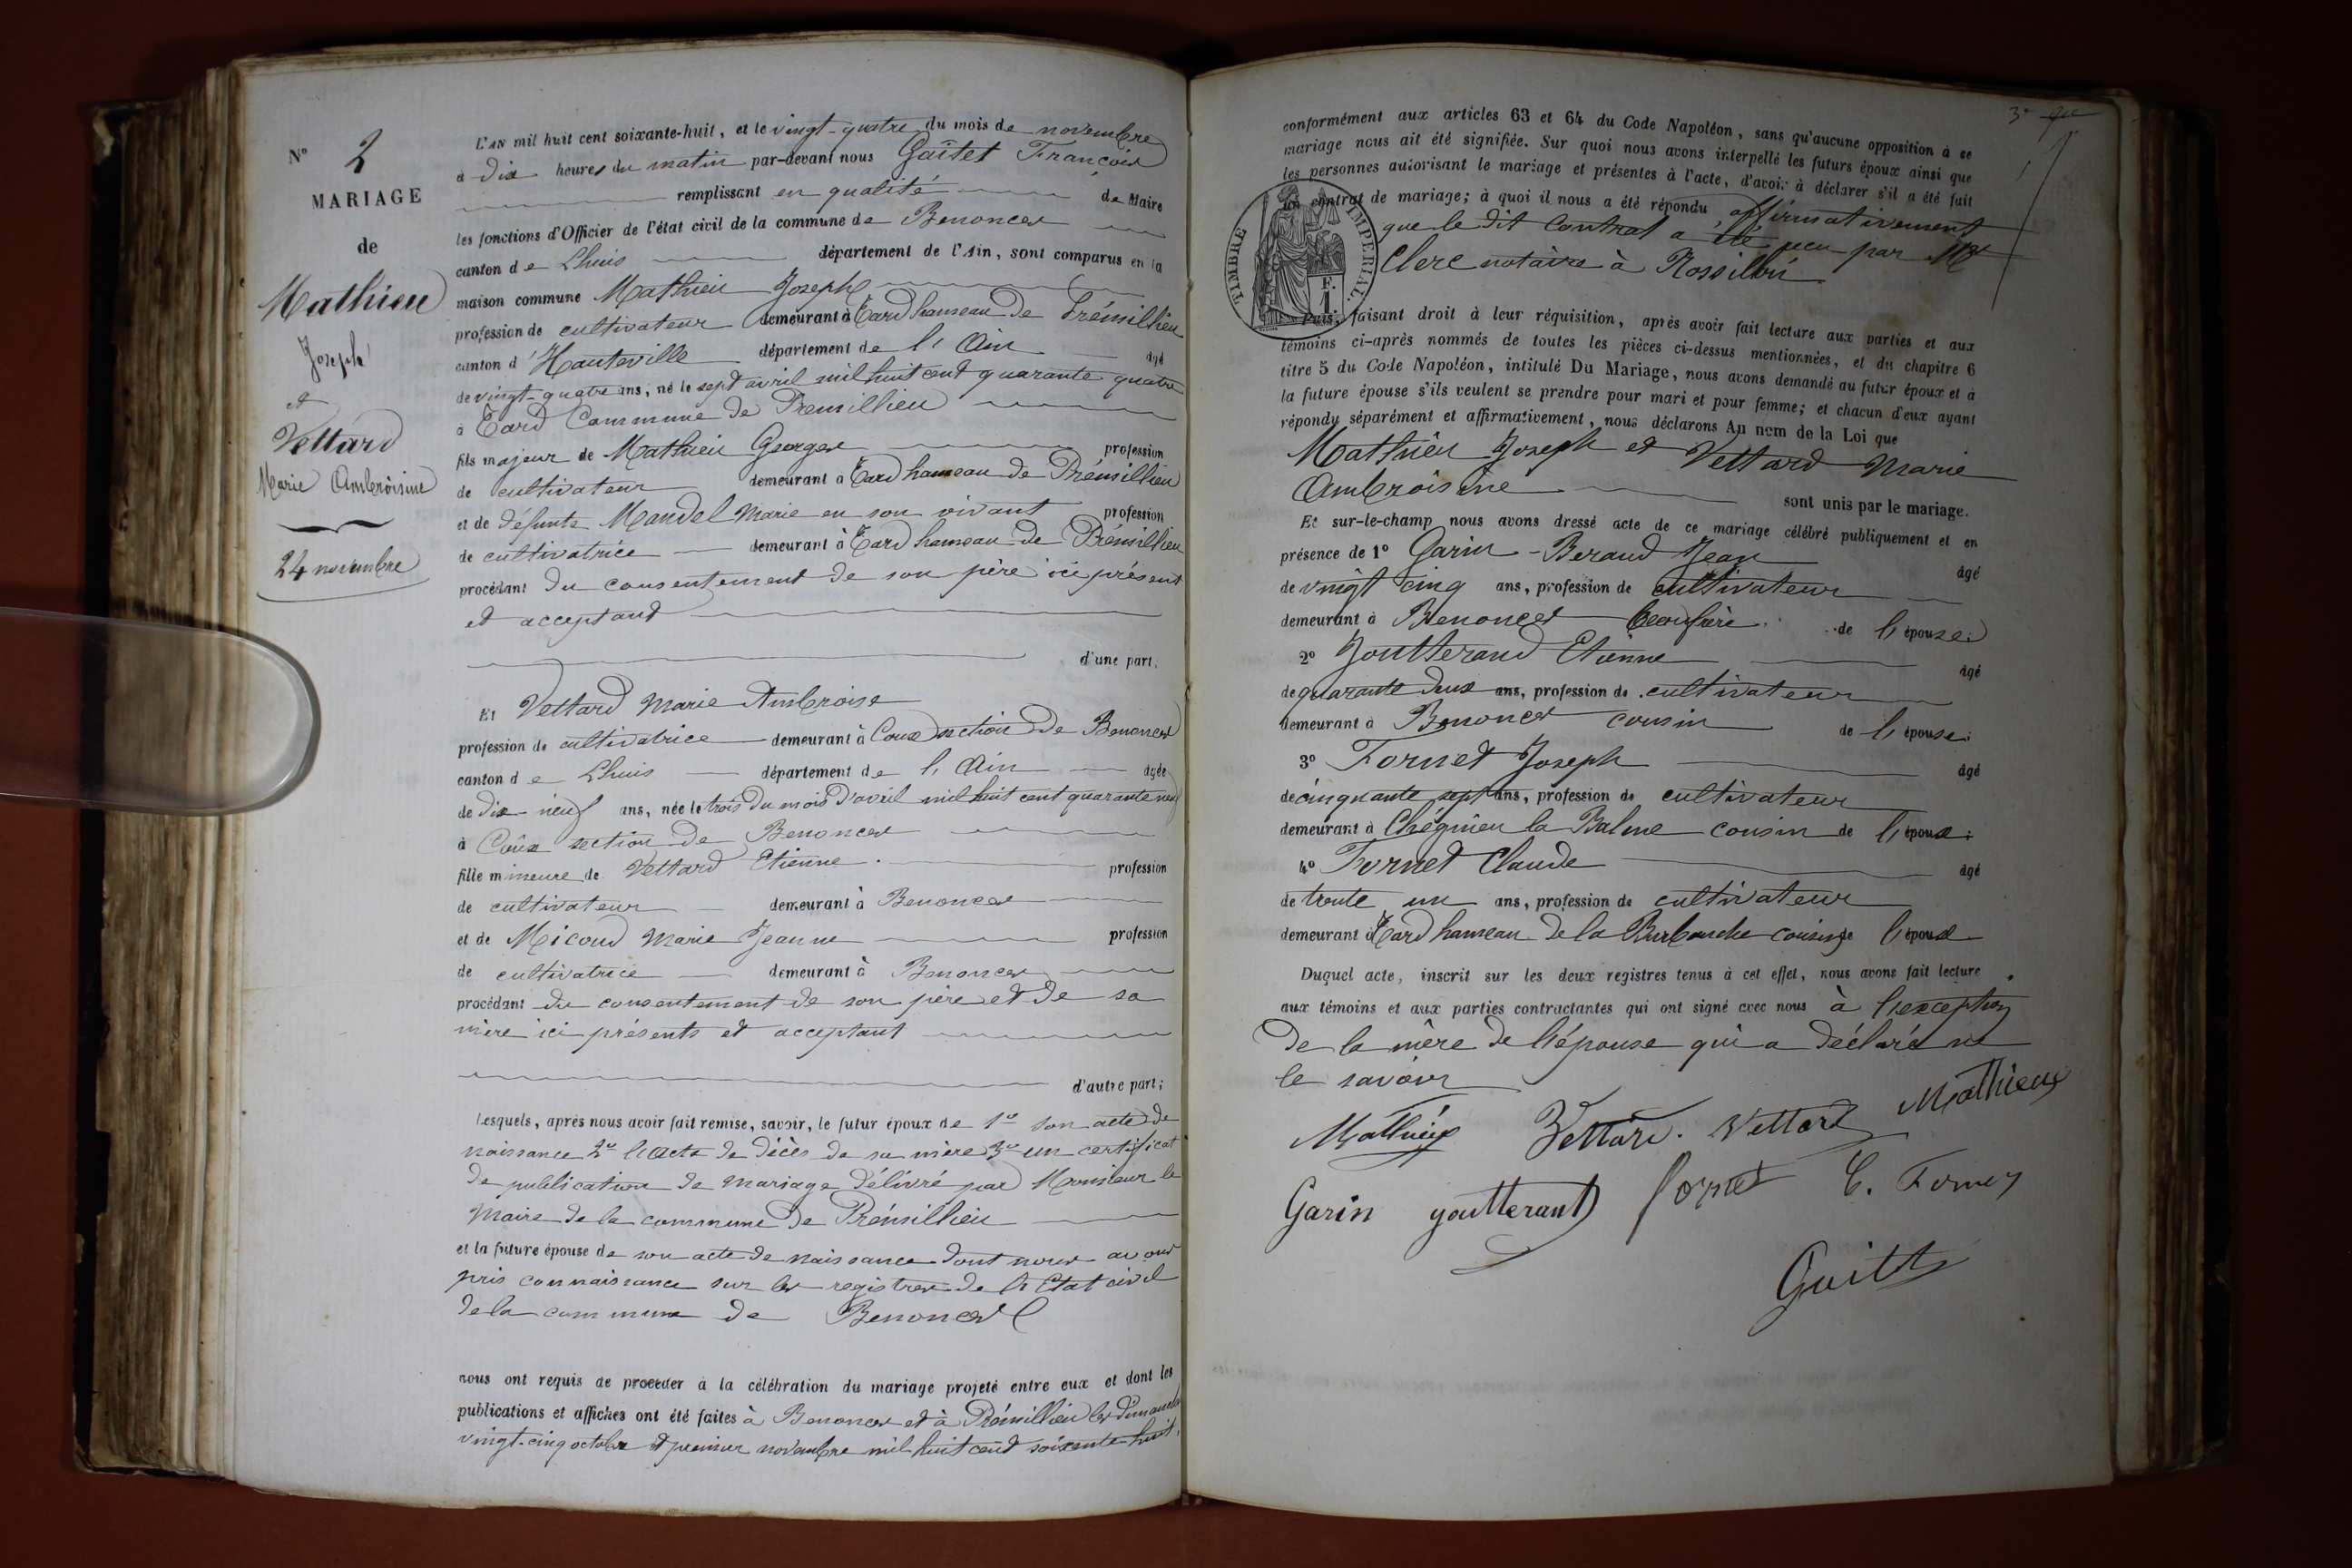 N° 2
MARIAGE
de
Mathieu
Joseph
et
Vettard
Marie Ambroisine
24 novembre
L'AN mil huit cent soixante-huit, et le vingt-quatre du mois de novembre
à dix heures du matin par-devant nous Gaîtet François
remplissant en qualité de Maire
les fonctions d'Officier de l'état civil de la commune de Benonces
canton de Lhuis département de l'Ain, sont comparus en la
maison commune Mathieu Joseph
profession de cultivateur demeurant à hameau de Prémillieu
canton d'Hauteville département de l'Ain âgé
de vingt-quatre ans, né le sept avril mil huit cent quarante quatre
à Commune de Premillieu
fils majeur de Mathieu Georges profession
de cultivateur demeurant à hameau de Prémillieu
et de défunte Mandel Marie en son vivant profession
de cultivatrice demeurant à hameau de Prémillieu
procédant du consentement de son père ici présent
et acceptant
d'une part,
Et Vettard Marie Ambroise
profession de cultivatrice demeurant à Coux section de Benonces
canton de Lhuis département de l'Ain âgée
de dix-neuf ans, née le trois du mois d'avril mil huit cent quarante neuf
à Coux section de Benonces
fille mineure de Vettard Etienne profession
de cultivateur demeurant à Benonces
et de Micoud Marie Jeanne profession
de cultivatrice demeurant à Benonces
procédant du consentement de son père et de sa
mère ici présents et acceptant
d'autre part;
Lesquels, après nous avoir fait remise, savoir, le futur époux de 1° son acte de
naissance 2° l'acte de décès de sa mère 3° un certificat
de publication de mariage délivré par Monsieur le
Maire de la commune de Prémillieu
et la future épouse de son acte de naissance dont nous avons
pris connaissance sur les registres de l'Etat civil
de la commune de Benonces
nous ont requis de procéder à la célébration du mariage projeté entre eux et dont les
publications et affiches ont été faites à Benonces et à Prémillieu les dimanches
vingt-cinq octobre et premier novembre mil huit cent soixante huit,
conformément aux articles 63 et 64 du Code Napoléon, sans qu'aucune opposition à ce
mariage nous ait été signifiée. Sur quoi nous avons interpellé les futurs époux ainsi que
les personnes autorisant le mariage et présentes à l'acte, d'avoir à déclarer s'il a été fait
un contrat de mariage; à quoi il nous a été répondu affirmativement
que le dit Contrat a été reçu par Me
Clerc notaire à Rossillon
TIMBRE IMPERIAL
F.
1
Puis, faisant droit à leur réquisition, après avoir fait lecture aux parties et aux
témoins ci-après nommés de toutes les pièces ci-dessus mentionnées, et du chapitre 6
titre 5 du Code Napoléon, intitulé Du Mariage, nous avons demandé au futur époux et à
la future épouse s'ils veulent se prendre pour mari et pour femme; et chacun d'eux ayant
répondu séparément et affirmativement, nous déclarons Au nom de la Loi que
Mathieu Joseph et Vettard Marie
Ambroisine
sont unis par le mariage.
Et sur-le-champ nous avons dressé acte de ce mariage célébré publiquement et en
présence de 1° Garin-Beraud Jean âgé
de vingt cinq ans, profession de cultivateur
demeurant à Benonces beaufrère de l'épouse;
2° Joutterand Etienne âgé
de quarante deux ans, profession de cultivateur
demeurant à Benonces cousin de l'épouse;
3° Fornet Joseph âgé
de cinquante sept ans, profession de cultivateur
demeurant à Cheignieu la Balme cousin de l'époux;
4° Fornet Claude âgé
de trente un ans, profession de cultivateur
demeurant à hameau de la Burbanche cousin de l'époux
Duquel acte, inscrit sur les deux registres tenus à cet effet, nous avons fait lecture
aux témoins et aux parties contractantes qui ont signé avec nous à l'exception
de la mère de l'épouse qui a déclaré ne
le savoir
Mathieu Vettard. Vettard Mathieu
Garin goutterant fornet C. Fornet